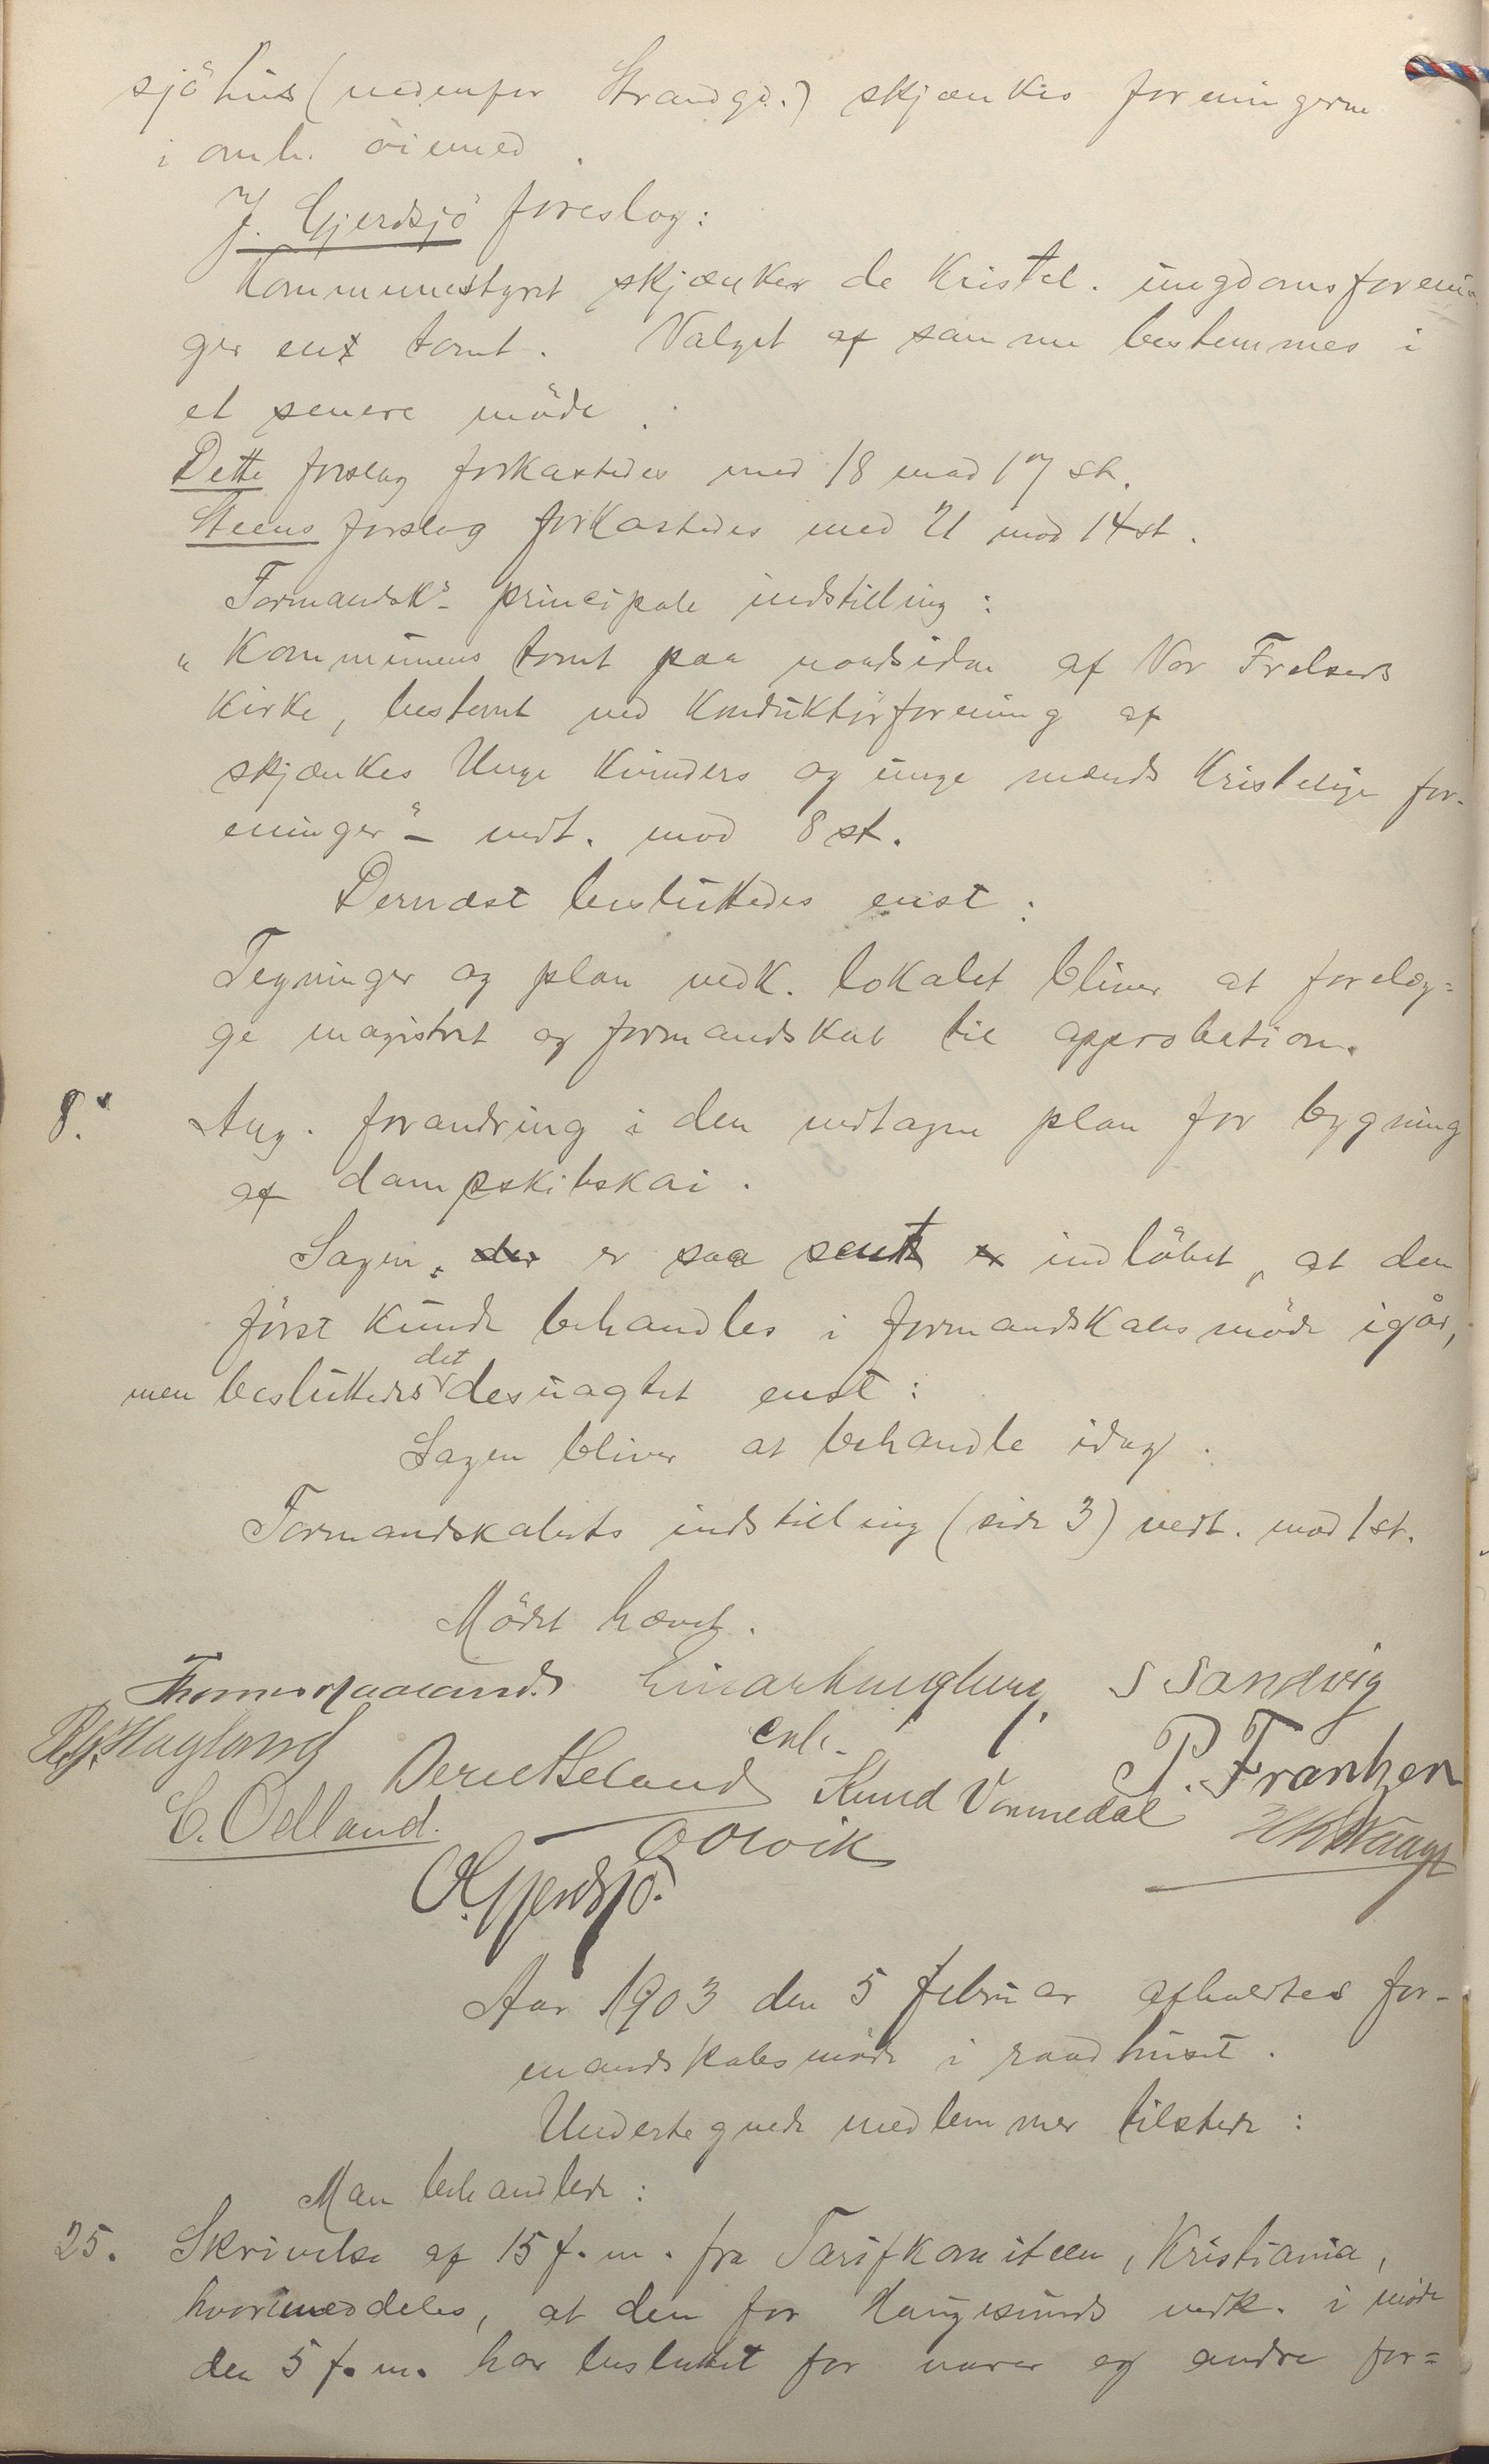 sjöhus (nedenfor Strandgd.) skjænkes foreningerne
i omh. öiemed.
J. Gjerdsjö foreslog:
Kommunestyret skjænker de Kristel. ungdomsforenin
ger en tomt. Valget af samme bestemmes i
et senere möde.
Dette forslag forkastedes med 18 mod 17 st.
Steens forslag forkastedes med 21 mod 14 st.
Formandsk's principale indstilling:
"Kommunens tomt paa nordsiden af Vor Frelsers
Kirke, bestemt ved Konduktörforening af
skjænkes Unge Kvinders og unge mænds Kristelige for-
eninger" – vedt. mod 8 st.
Dernæst besluttedes enst:
Tegninger og plan vedk. lokalet bliver at forelæg=
ge magistrat og formandskab til approbation.
8. Ang. forandring i den vedtagne plan for bygning
af dampskibskai.
Sagen er saa sent indlöbet, at den
först kunde behandles i formandskabsmöde igår,
men besluttedes det desuagtet enst:
Sagen bliver at behandle idag.
Formandskabets indstilling (side 3) vedt. mod 1 st.
Mödet hævet.
Thomas Haaland. Einar Knighberg. S Sandvig
Hagland
enb.
Berent Heland Knud Vormedal P. Frantzen
C. Oelland. O Olvik
O. Gjerdsjö.
Aar 1903 den 5 februar afholdtes for-
mandskabsmöde i raadhuset.
Undertegnede medlemmer tilstede:
Man behandlede:
25. Skrivelse af 15 f. m. fra Tarifkomiteen, Kristiania,
hvori meddeles, at den for Haugesunds vedk. i möde
den 5 f. m. har besluttet for varer og andre for=